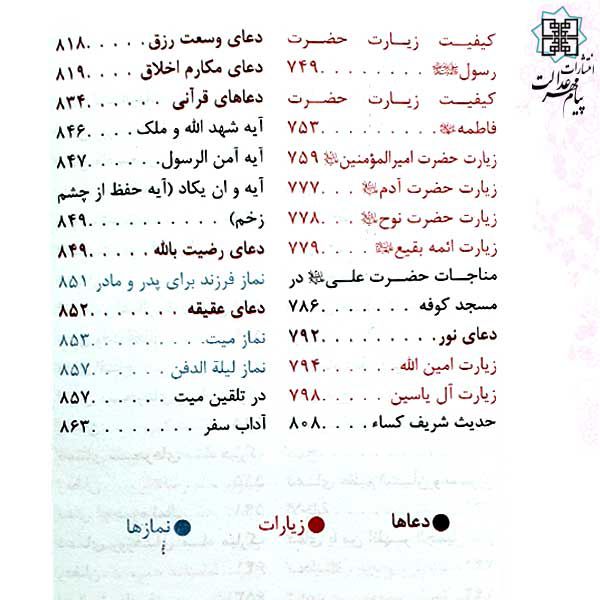 کیفیت زیارت حضرت
رسول ﷺ . . . . . . . . . ۷۴۹
کیفیت زیارت حضرت
فاطمه . . . . . . . . . ۷۵۳
زیارت حضرت امیرالمؤمنین ۷۵۹
زیارت حضرت آدم . . . ۷۷۷
زیارت حضرت نوح . . . ۷۷۸
زیارت ائمه بقیع . . . . ۷۷۹
مناجات حضرت علی در
مسجد کوفه . . . . . . . ۷۸۶
دعای نور. . . . . . . . . ۷۹۲
زیارت امین الله . . . . . ۷۹۴
زیارت آل یاسین . . . . ۷۹۸
حدیث شریف کساء . . . . ۸۰۸
دعای وسعت رزق . . . . . .۸۱۸
دعای مکارم اخلاق . . . . .۸۱۹
دعاهای قرآنی . . . . . . . ۸۳۴
آیه شهد الله و ملک . . . . ۸۴۶
آیه آمن الرسول. . . . . . .۸۴۷
آیه و ان یکاد (آیه حفظ از چشم
زخم) . . . . . . . . . . . ۸۴۹
دعای رضیت بالله . . . . . ۸۴۹
نماز فرزند برای پدر و مادر ۸۵۱
دعای عقیقه . . . . . . . . ۸۵۲
نماز میت. . . . . . . . . . ۸۵۳
نماز لیلة الدفن . . . . . . ۸۵۷
در تلقین میت . . . . . . . ۸۵۷
آداب سفر . . . . . . . . .۸۶۳
دعاها
زیارات
نمازها
انتشارات
پیام مهر عدالت